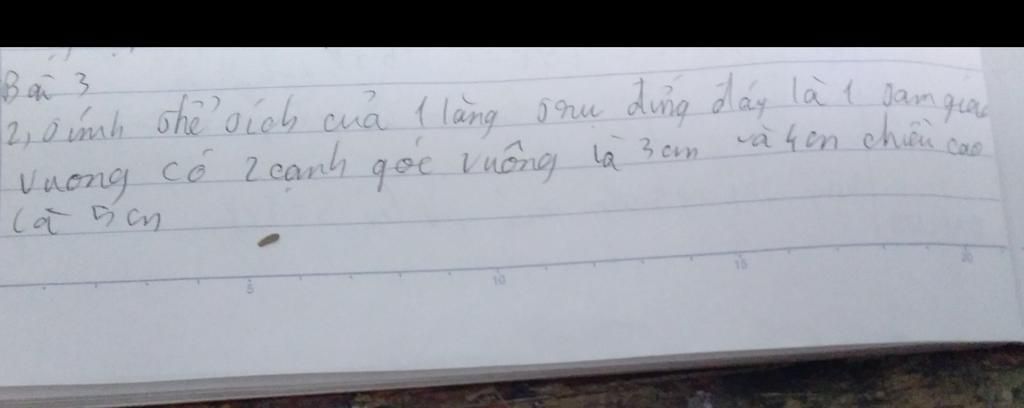 Bài 3
2, Tính thể tích của 1 lăng trụ đứng đáy là 1 tam giác
vuong có 2 cạnh góc vuông là 3 cm và 4 cm chiều cao
là 5 cm
5 10 15 20